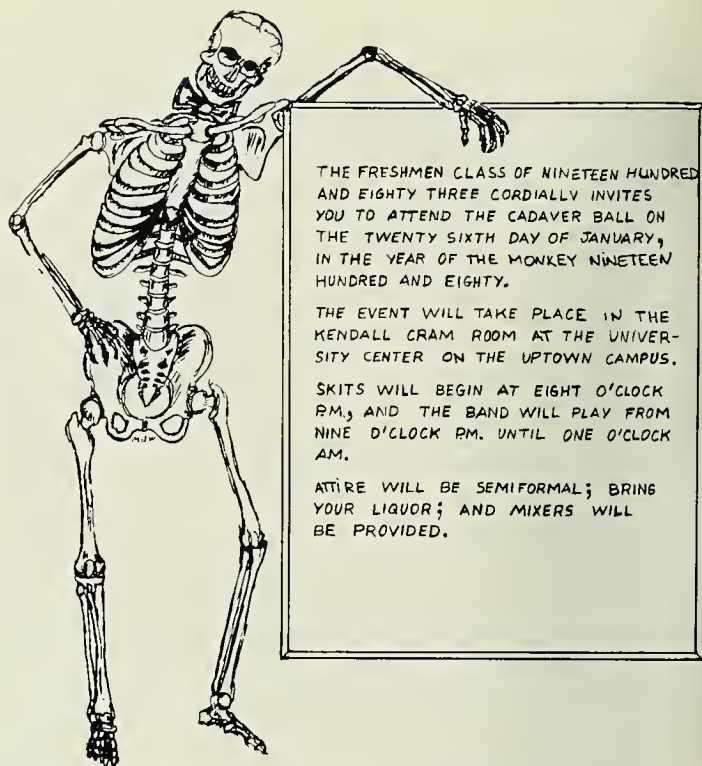 THE FRESHMEN CLASS OF NINETEEN HUNDRED
AND EIGHTY THREE CORDIALLY INVITES
YOU TO ATTEND THE CADAVER BALL ON
THE TWENTY SIXTH DAY OF JANUARY,
IN THE YEAR OF THE MONKEY NINETEEN
HUNDRED AND EIGHTY.
THE EVENT WILL TAKE PLACE IN THE
KENDALL CRAM ROOM AT THE UNIVER-
SITY CENTER ON THE UPTOWN CAMPUS.
SKITS WILL BEGIN AT EIGHT O'CLOCK
P.M., AND THE BAND WILL PLAY FROM
NINE O'CLOCK P.M. UNTIL ONE O'CLOCK
A.M.
ATTIRE WILL BE SEMIFORMAL; BRING
YOUR LIQUOR; AND MIXERS WILL
BE PROVIDED.
MJW